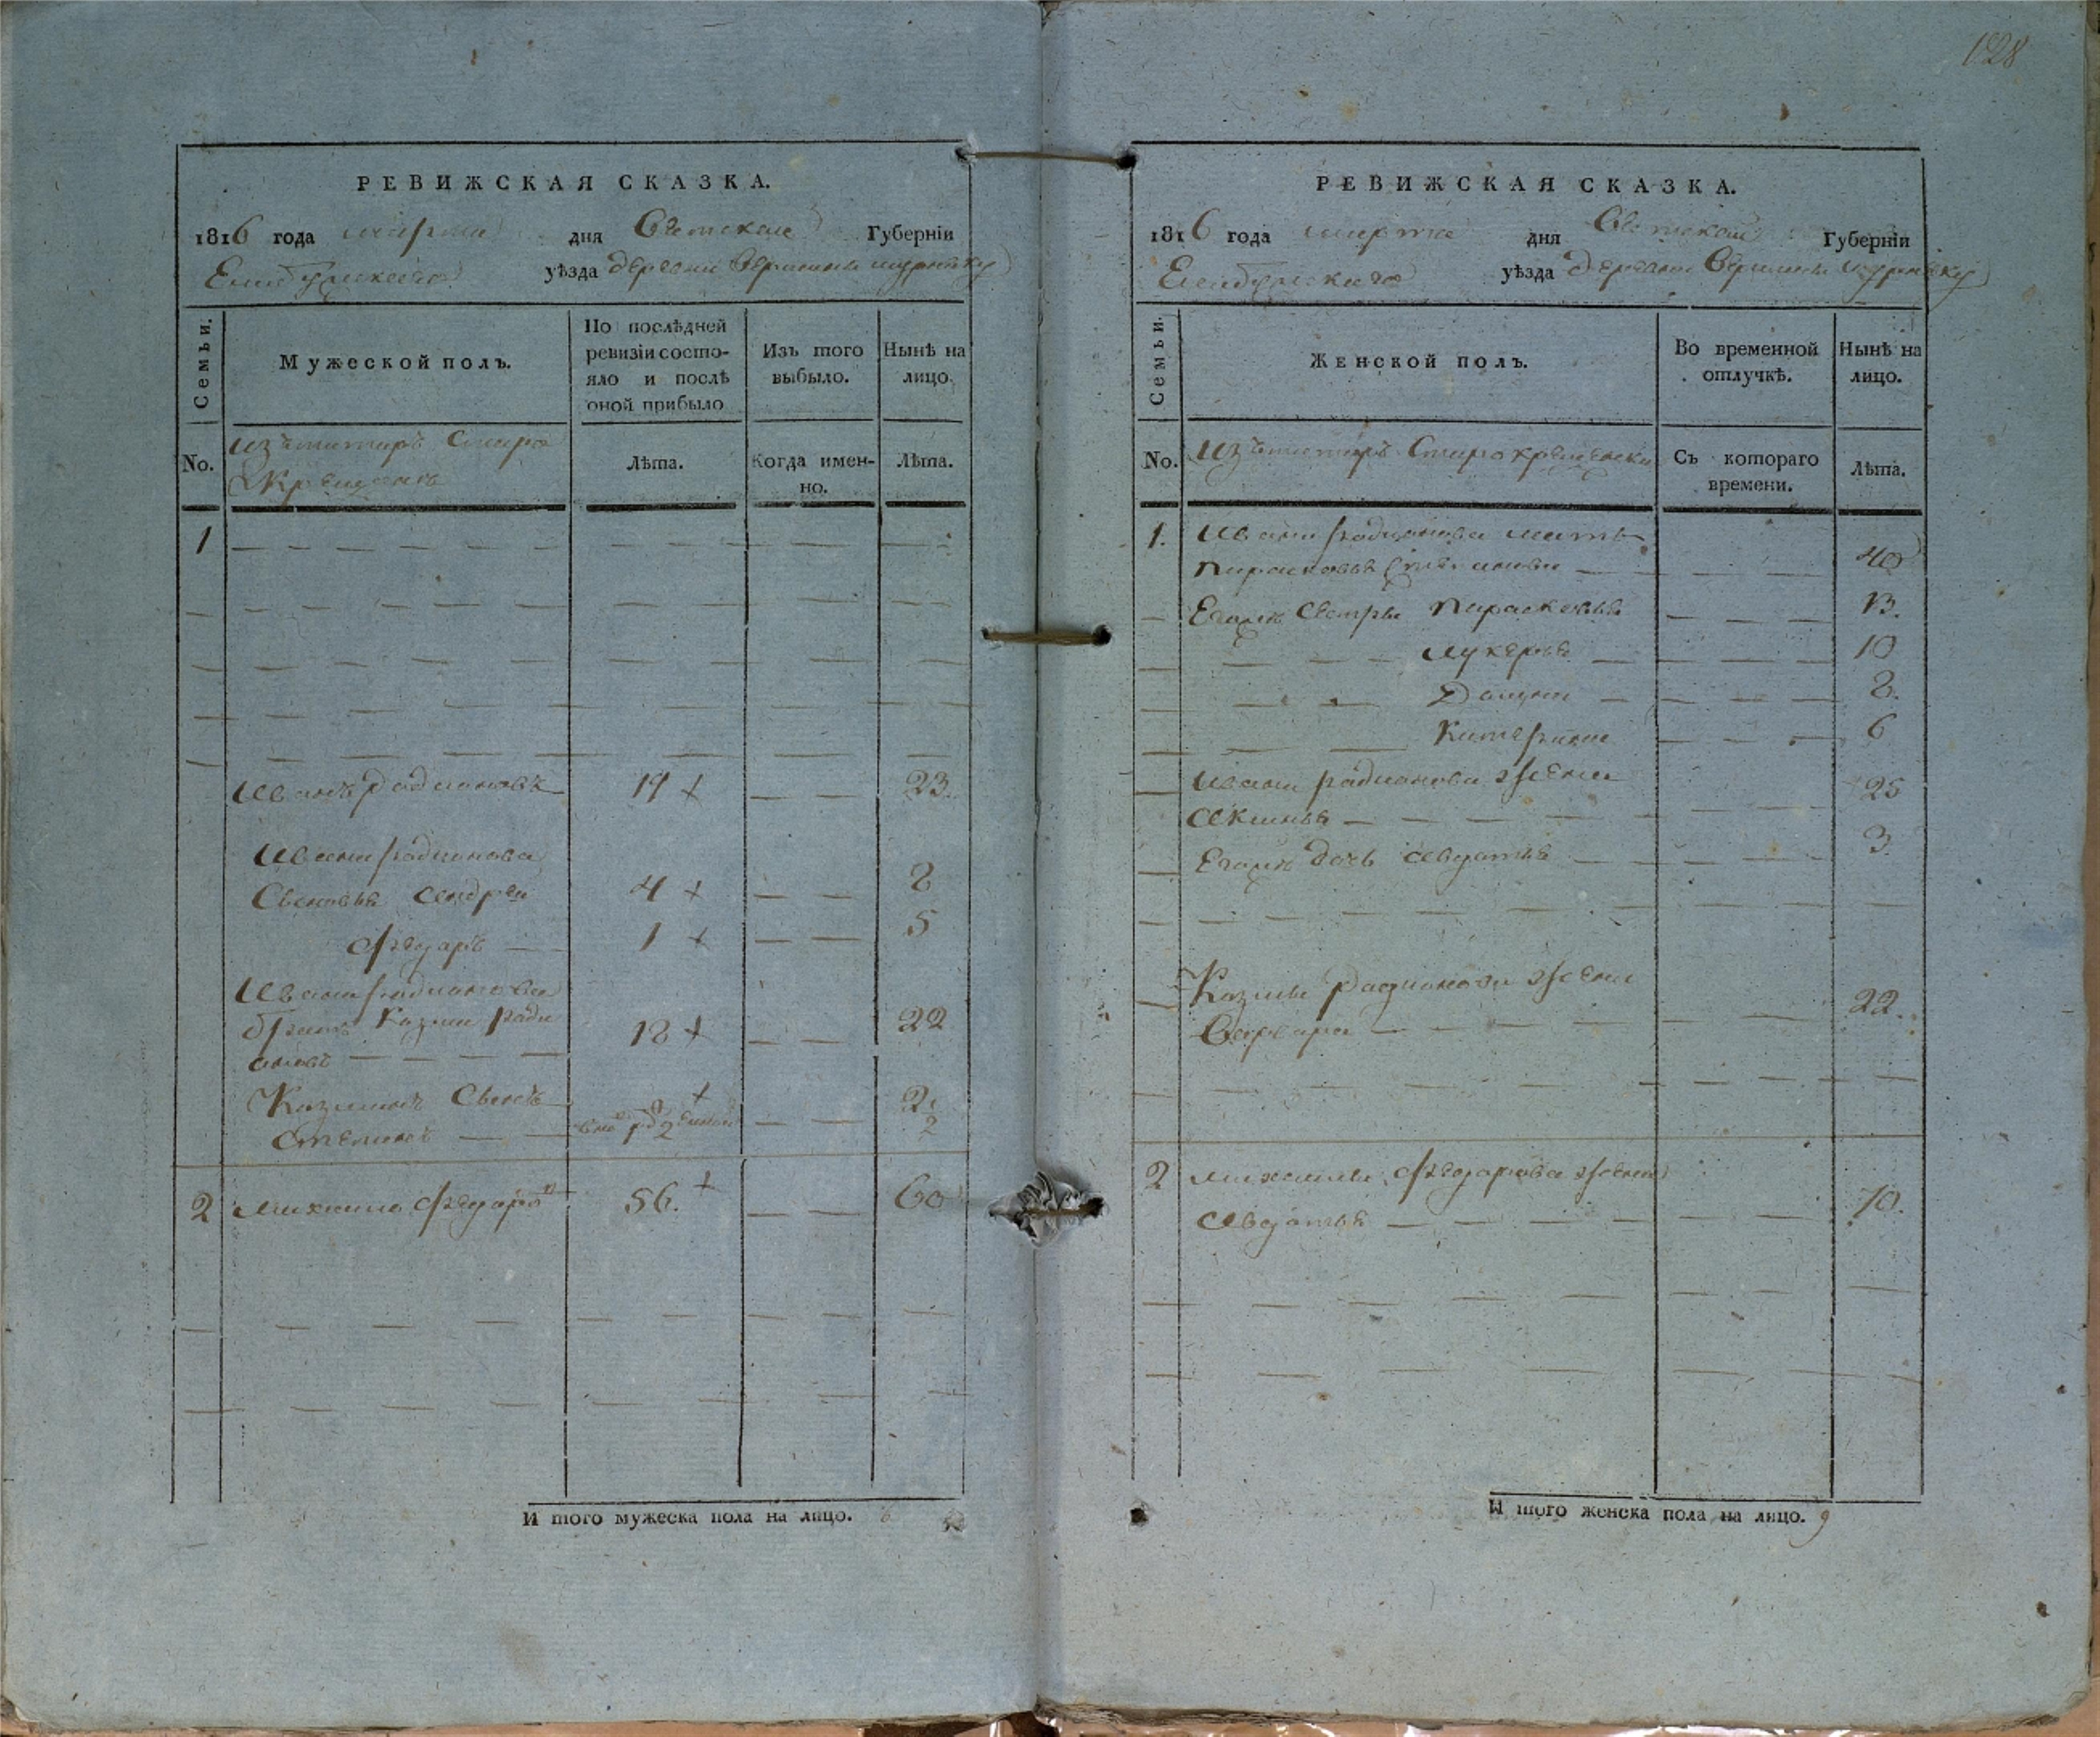 128
РЕВИЖСКАЯ СКАЗКА.
1816 года марта дня Вятской Губерніи
Елабужскаго уѣзда деревни Вершины
Семьи.
Мужеской полъ.
По послѣдней
ревизіи состо-
яло и послѣ
оной прибыло
Изъ того
выбыло.
Нынѣ на
лицо.
No.
изъ татаръ старо
крещенъ
Лѣта.
Когда имен-
но.
Лѣта.
1
Иванъ Радиановъ 19 + 23.
Ивана Радианова
Сыновья Андрей 4 + 8
Ѳедаръ 1 + 5
Ивана Радианова
братъ Казма Ради
ановъ 18 + 22
Казминъ Сынъ +
Степанъ 2
2 Михаило Ѳедаровъ 56. + 60
И того мужеска пола на лицо. 6
РЕВИЖСКАЯ СКАЗКА.
1816 года марта дня Вятской Губерніи
Елабужскаго уѣзда деревни Вершины
Семьи.
Женской полъ.
Во временной
отлучкѣ.
Нынѣ на
лицо.
No.
изъ татаръ старокрещенъ
Съ котораго
времени.
Лѣта.
1. Ивана Радианова мать
Парасковья 40
Егожъ Сестры Параскевья 13.
Лукерья 10
8.
Катерина 6
Ивана Радианова жена
Аксинья 25
Егожъ дочь Авдотья 3.
Казмы Радианова жена
Варвара 22.
2 Михаилы Ѳедарова жена
Авдотья 70.
И того женска пола на лицо. 9